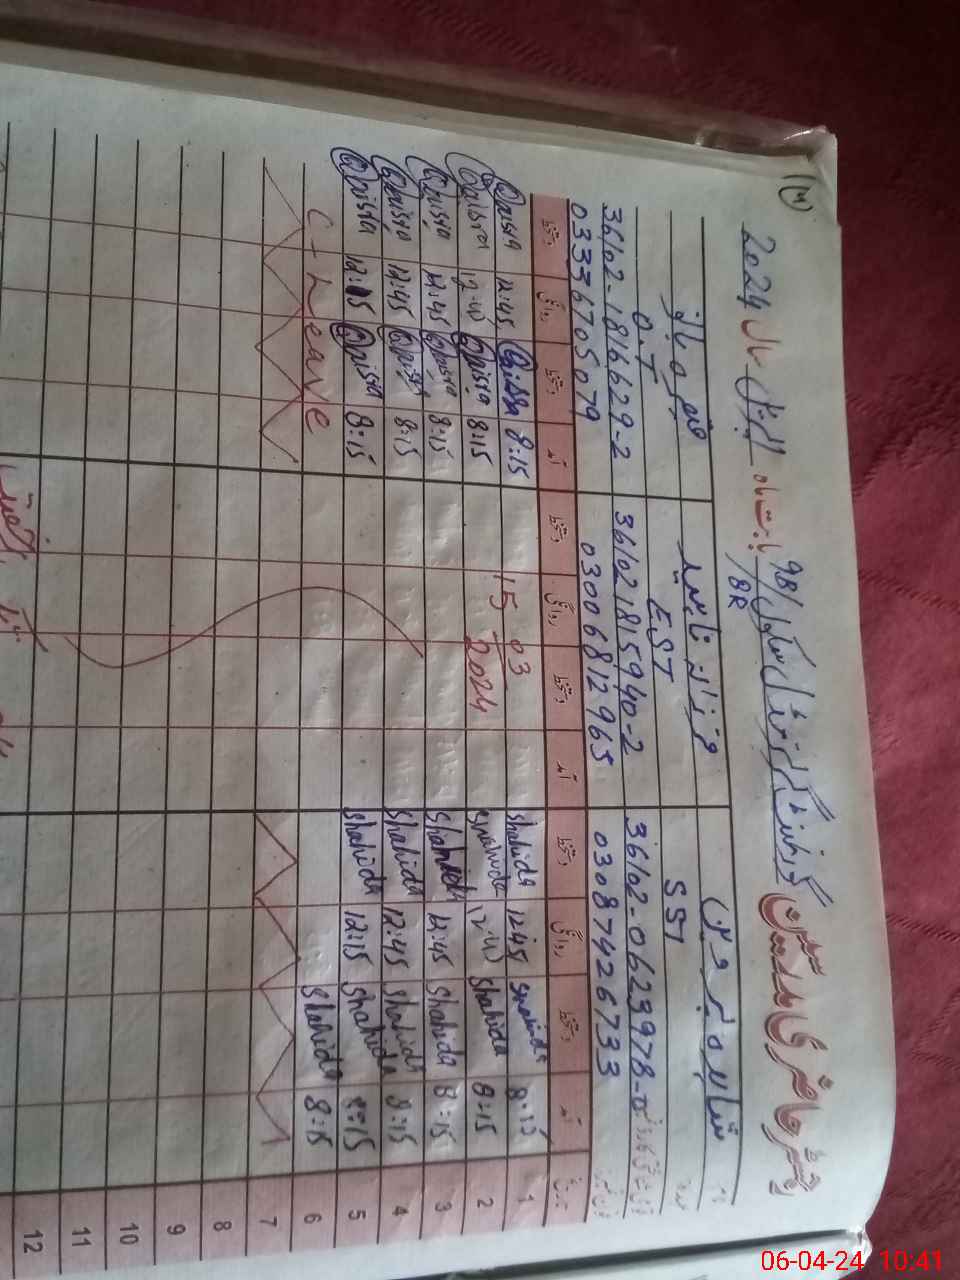 رجسٹر حاضری مدرسین گورنمنٹ گرلز ہائی سکول 98/8R بابت ماہ اپریل سال 2024
(14)
نام شاہدہ پروین
عہدہ SST
36102-0623978-0
03087426733
فرزانہ ناہید
EST
36102 1815940-2
03006812965
قیصرہ بانو
O.T
36102-1816629-2
03336705079
تاریخ آمد دستخط روانگی دستخط آمد دستخط روانگی دستخط آمد دستخط روانگی دستخط
1 8:15 Shahida 12:45 Shahida 8:15 Qaisra 12:45 Qaisra
2 8:15 Shahida 12:45 Shahida 8:15 Qaisra 12:45 Qaisra
3 8:15 Shahida 12:45 Shahida 8:15 Qaisra 12:45 Qaisra
4 8:15 Shahida 12:45 Shahida 8:15 Qaisra 12:45 Qaisra
5 8:15 Shahida 12:15 Shahida 8:15 Qaisra 12:15 Qaisra
15 03
2024
6 8:15 Shahida C-Leave
7
8
9
10
11
12
06-04-24 10:41